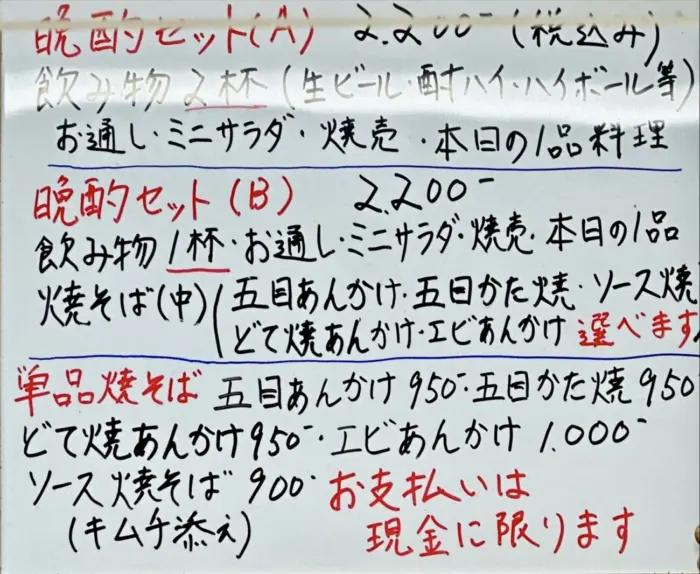 晩酌セット(A) 2.200- (税込み)
飲み物2杯(生ビール・酎ハイ・ハイボール等)
お通し・ミニサラダ・焼売・本日の1品料理
晩酌セット(B) 2.200-
飲み物1杯・お通し・ミニサラダ・焼売・本日の1品
焼そば(中)(五目あんかけ・五目かた焼・ソース焼
どて焼あんかけ・エビあんかけ 選べます
単品焼そば 五目あんかけ950-・五目かた焼950
どて焼あんかけ950-・エビあんかけ1.000-
ソース焼そば900- お支払いは
(キムチ添え) 現金に限ります